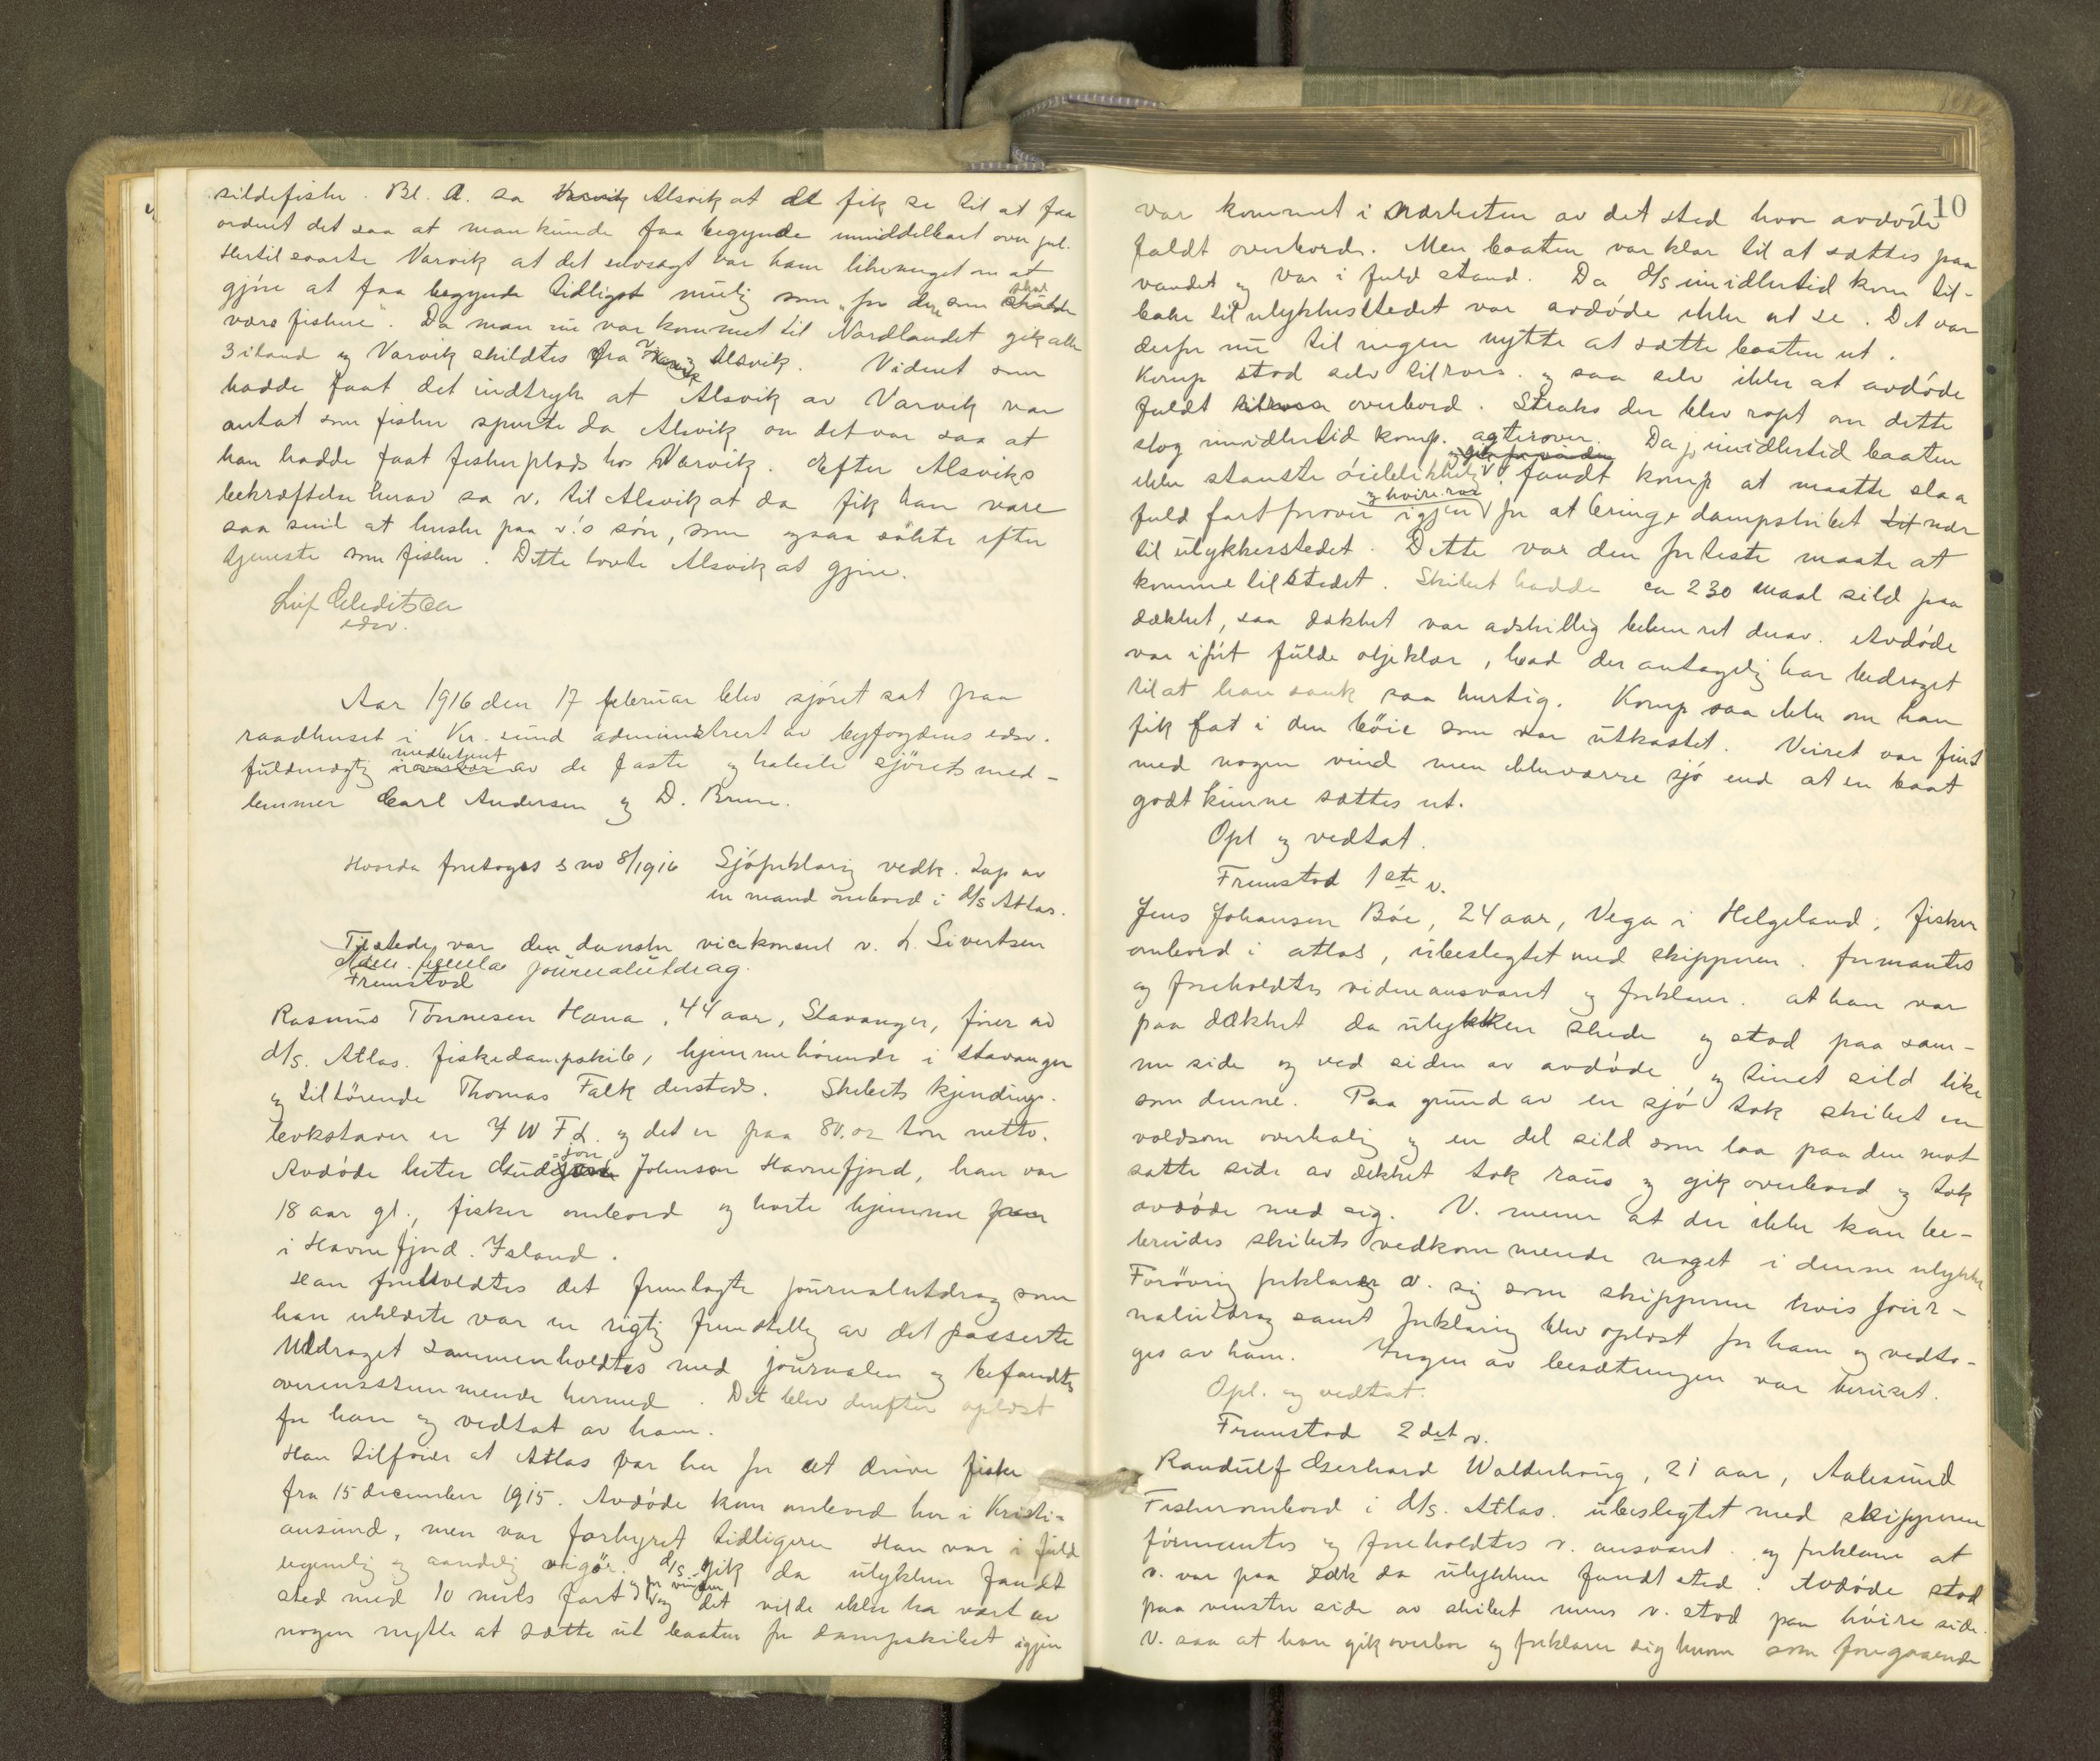 sildefisker. Bl. A. sa Varvik Alsvik at de fik se til at faa
ordnet det saa at man kunde faa begynde umiddelbart over jul.
Hertil svarte Varvik at det selvsagt var ham likemeget om at
gjøre at faa begynde tidligst mulig som "for dere som skal skulde
være fiskere". Da man nu var kommet til Nordlandet gik alle
3 iland og Varvik skildtes fra Alsvik. Vidnet som
hadde faat det indtryk at Alsvik av Varvik var
antat som fisker spurte da Alsvik om det var saa at
han hadde faat fiskerplads hos Varvik. Efter Alsviks
bekræftelse herav sa v. til Alsvik at da fik han være
saa snil at huske paa v:s søn, som ogsaa søkte efter
tjeneste som fisker. Dette lovte Alsvik at gjøre.
Leif Gleditsch
edsv.
Aar 1916 den 17 februar blev sjøret sat paa
raadhuset i Kr. sund administrert av byfogdens edsv.
fuldmægtig medbetjent av de faste og habile sjøretsmed-
lemmer Carl Andersen og D. Brun.
Hvorda foretoges s no 8/1916 Sjøforklaring vedk. tap av
en mand ombord i d/s Atlas.
Tilstede var den danske vicekonsul v. L. Sivertsen
journalutdrag.
Fremstod
Rasmus Tönnesen Hana, 44 aar, Stavanger, fører av
d/s. Atlas. fiskedampskib, hjemmehörende i Stavanger
og tilhörende Thomas Falk dersteds. Skibets kjendings-
bokstaver er M W F L. og det er paa 80.02 ton netto.
Avdøde heter Gudjon Johnson Havnefjord, han var
18 aar gl., fisker ombord og hørte hjemme paa
i Havnefjord. Island.
Han foreholdtes det fremlagte journalutdrag som
han erklærte var en rigtig fremstelling av det passerte
Utdraget sammenholdtes med journalen og befandtes
overensstemmende hermed. Det blev derefter oplæst
for ham og vedtat av ham.
Han tilføier at Atlas var her for at drive fiske
fra 15 december 1915. Avdøde kom ombord her i Kristi-
ansund, men var forhyret tidligere. Han var i fuld
legemlig og aandelig vigør. d/s gik da ulykken fandt
sted med 10 mils fart og for vinden og det vilde ikke ha vært av
nogen nytte at sætte ut baaten før dampskibet igjen
10
var kommet i nærheten av det sted hvor avdøde
faldt overbord. Men baaten var klar til at sættes paa
vandet og var i fuld stand. Da d/s imidlertid kom til-
bake til ulykkesstedet var avdøde ikke at se. Det var
derfor nu til ingen nytte at sætte baaten ut.
Komp stod selv tilrors. og saa selv ikke at avdøde
faldt overbord. Straks der blev ropt om dette
slog imidlertid komp. agterover. Da imidlertid baaten
ikke stanste øieblikkelig fandt komp at maatte slaa
fuld fart forover igjen og høire ror for at bringe dampskibet nær
til ulykkesstedet. Dette var den forteste maate at
komme til stedet. Skibet hadde ca 230 maal sild paa
dækket, saa dækket var adskillig belemret derav. Avdøde
var iført fulde oljeklær, hvad der antagelig har bedraget
til at han sank saa hurtig. Komp saa ikke om han
fik fat i den bøie som var utkastet. Veiret var fint
med nogen vind men ikke værre sjø end at en baat
godt kunne sættes ut.
Opl og vedtat.
Fremstod 1ste v.
Jens Johansen Bøe, 24 aar, Vega i Helgeland, fisker
ombord i Atlas, ubeslegtet med skipperen. formantes
og foreholdtes vidneansvaret og forklarer. at han var
paa dækket da ulykken skede og stod paa sam-
me side og ved siden av avdøde og tinet sild like
som denne. Paa grund av en sjø tok skibet en
voldsom overhaling og en del sild som laa paa den mot
satte side av dekket tok raus og gik overbord og tok
avdøde med sig. V. mener at der ikke kan be-
breides skibets vedkommende noget i denne ulykke
Forøvrig forklarer v. sig som skipperen hvis jour-
nalutdrag samt forklaring blev oplæst for ham og vedto-
ges av ham. Ingen av besætningen var beruset.
Opl. og vedtat.
Fremstod 2det v.
Randulf Gerhard Walderhaug, 21 aar, Aalesund
Fisker ombord i d/s. Atlas. ubeslegtet med skipperen
formantes og foreholdtes v. ansvaret. og forklarer at
v. var paa dæk da ulykken fandt sted. Avdøde stod
paa venstre side av skibet mens v. stod paa høire side.
V. saa at han gik overbor og forklarer sig herom som foregaaende